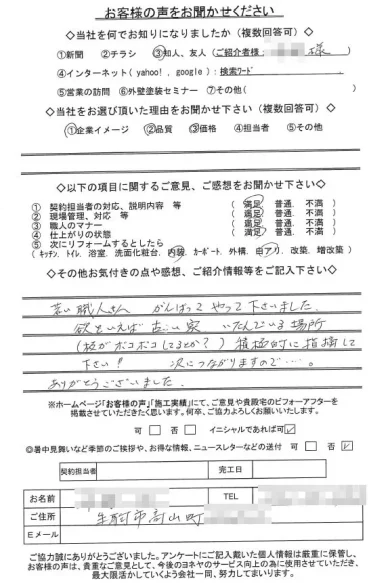 お客様の声をお聞かせください
◇当社を何でお知りになりましたか（複数回答可）◇
①新聞 ②チラシ ③知人、友人（ご紹介者様： 様
④インターネット（yahoo!，google）：検索ﾜｰﾄﾞ
⑤営業の訪問 ⑥外壁塗装セミナー ⑦その他（ ）
◇当社をお選び頂いた理由をお聞かせ下さい（複数回答可）◇
①企業イメージ ②品質 ③価格 ④担当者 ⑤その他
◇以下の項目に関するご意見、ご感想をお聞かせ下さい◇
① 契約担当者の対応、説明内容 等 （ 満足 普通. 不満 ）
② 現場管理、対応 等 （ 満足 普通. 不満 ）
③ 職人のマナー （ 満足 普通. 不満 ）
④ 仕上がりの状態 （ 満足 普通. 不満 ）
⑤ 次にリフォームするとしたら
（ ｷｯﾁﾝ. ﾄｲﾚ. 浴室. 洗面化粧台. 内装. ｶｰﾎﾟｰﾄ. 外構. 白アリ. 改築. 増改築 ）
◇その他お気付きの点や感想、ご紹介情報等をご記入下さい◇
若い職人さん がんばって やって下さいました.
欲をいえば 古い家 いたんでいる場所
（板がボコボコしてるとか？） 積極的に指摘して
下さい!! 次につながりますので…。
ありがとうございました.
※ホームページ「お客様の声」「施工実績」にて、ご意見や貴殿宅のビフォーアフターを
掲載させていただきたく思います。何卒、ご協力よろしくお願いいたします。
可 否 イニシャルであれば可
◎暑中見舞いなど季節のご挨拶や、お得な情報、ニュースレターなどの送付 可 否
契約担当者 完工日
お名前 TEL
ご住所 生駒市高山町
Eメール
ご協力誠にありがとうございました。アンケートにご記入戴いた個人情報は厳重に保管し、
お客様の声は、貴重なご意見として、今後のヨネヤのサービス向上の為に使用させていただき、
最大限活かしていくよう会社一同、努力してまいります。